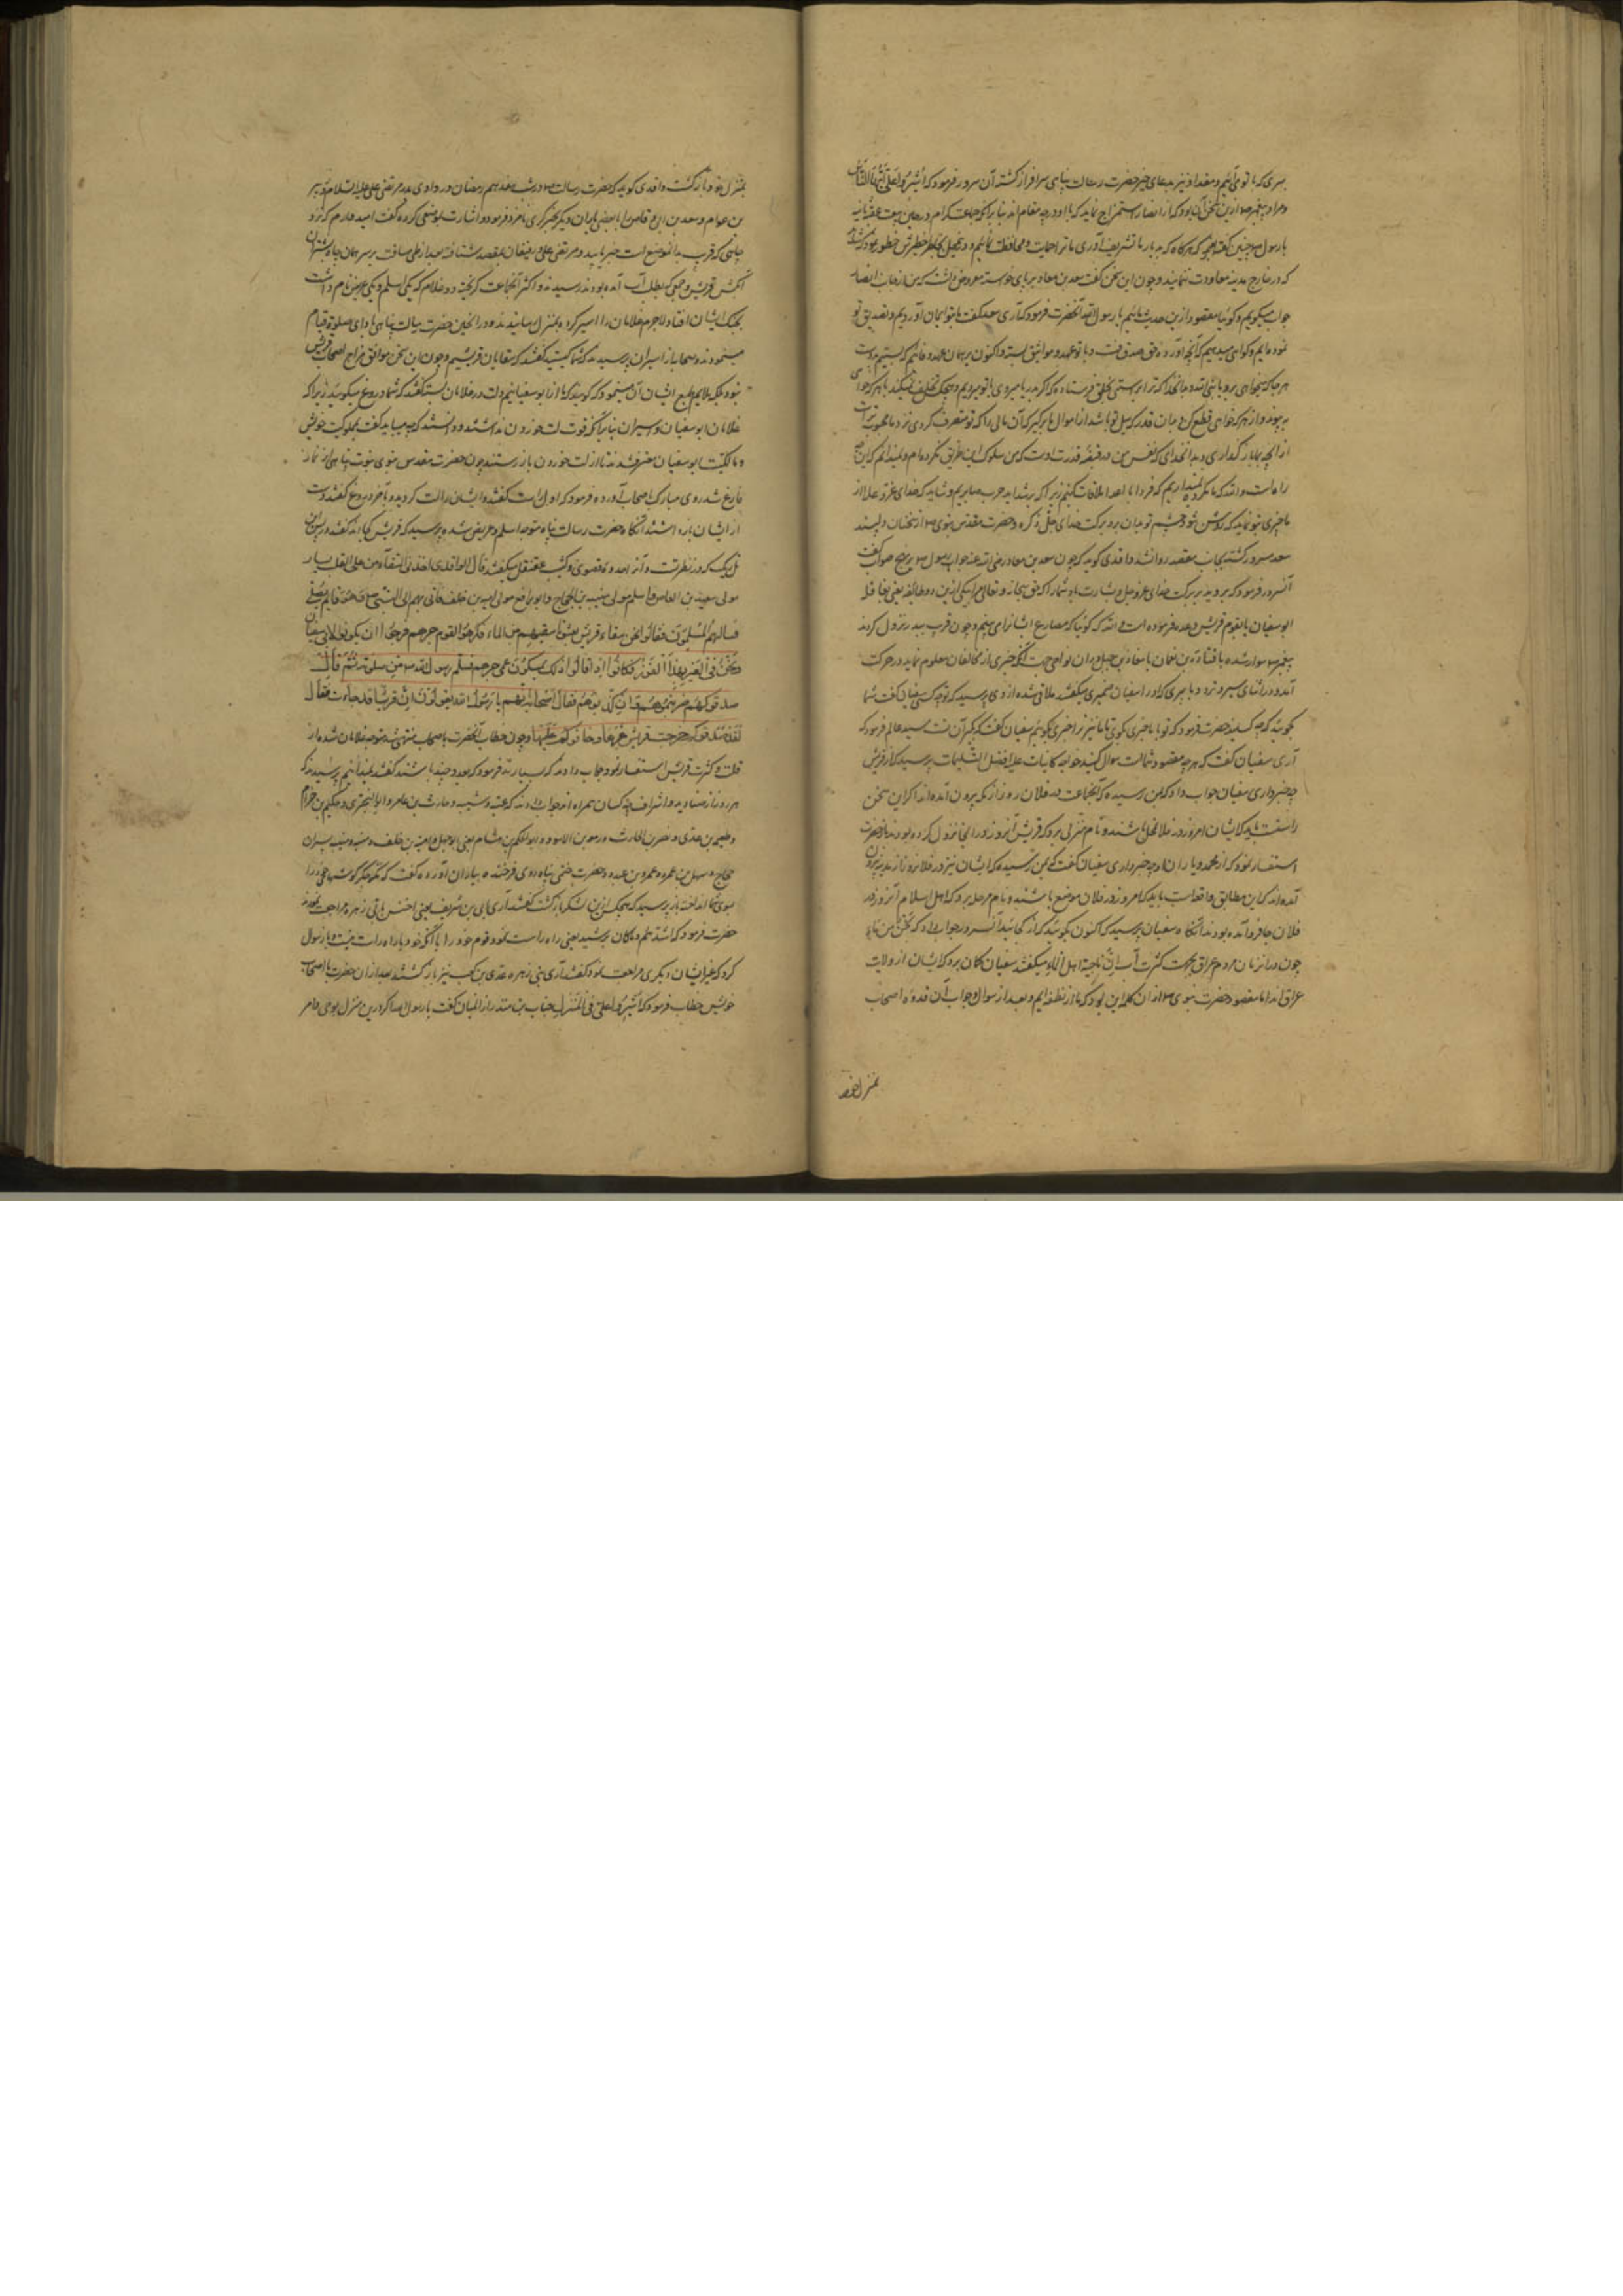 بسری که با تو می آییم و مقداد نیز بدعای خیر حضرت رسالت پناهی سرافراز کشته آن سرور فرمود که اشیروا علی ایها الناس
و مراد پیغمبر ص ازین سخن آن بود که از انصار استمزاج نماید که با او در چه مقام اند بنا بر انکه جماعت کرام در حین بیعت عقبه ثانیه
یا رسول ص چنین گفته بودند که هرکاه که بدیار ما تشریف آوری ما تراحمایت و محافظت نماییم و در تخیل خاطر خطیرش خطور نمود که شاید
که در خارج مدینه معاونت ننمایند و چون این سخن گفت سعد بن معاد بر پای خواسته معروض داشت که من از جانب انصار
جواب میکویم و کوییا مقصود ازین حدیث ماییم یا رسول الله آنحضرت فرمود که آری سعد گفت ما بتو ایمان آوردیم و تصدیق تو
نموده ایم و کواهی میدهیم که آنچه آورده حق و صدق است و با تو عهد و مواثیق بسته و اکنون بر همان عهد و
هر جا که میخواهی برو یا نبی الله و بدانخدا که ترا براستی بخلق فرستاده که اکر بدریا میروی با تو میرویم و هیچکس تخلف نمیکند با هر که خواهی
به پیوند و از هر که خواهی قطع کن و بدان قدر که میل تو باشد از اموال ما بر گیر که آن مالی را که تو متصرف کردی نزد ما محبوب تر است
از انچه بما باز گذاری و بدانخدای که نفس من در قبضه قدرت اوست که من سلوک این طریق نکرده ام و نمیدانم که این
راه است و الله که ما مکروه نمیداریم که فردا با اعدا ملاقات کنیم زیرا که بر شداید حرب صابریم و شاید که خدای عز و علا از
ما چیزی بتو نماید که روشن شود چشم تو بدان برو ببرکت خدای جل ذکره و حضرت مقدس نبوی ص از سخنان دلپسند
سعد مسرور کشته بجانب مقصد روان شد واقدی کوید که چون سعد بن معاد رضی الله عنه جواب رسول ص بر نهج صواب گفت
آنسرور فرمود که بروید ببرکت خدای عز و جل و بشارت باد شما را که حق سبحانه و تعالی مرا بیکی ازین دو طایفه یعنی بقافله
ابوسفیان یا بقوم قریش وعده فرموده است و الله که کوییا که مصارع ایشانرا می بینم و چون قرب ببدر نزول کردند
پیغمبر ص سوار شده با قتاده بن نعمان یا معاذ بن جبل دران نواحی جهت آنکه خبری از مخالفان معلوم نماید در حرکت
آمد و در اثنای سیر و تردد با پیری که او را سفیان ضمیری میکفتند ملاقی شده از وی پرسید که تو چه کسی سفیان گفت شما
بکویید که چه کسانید حضرت فرمود که تو با ما خبری بکوی تا ما نیز ترا خبری بکوییم سفیان گفت که
آری سفیان گفت که هر چه مقصود شماست سوال کنید خواجه کاینات علیه افضل التسلیمات پرسید که از قریش
چه خبر داری سفیان جواب داد که بمن رسیده که آنجماعت در فلان روز از مکه بیرون آمده اند اکر این سخن
راست باید که ایشان امروز در فلان محل باشند و نام منزلی برد که قریش آنروز در آنجا نزول کرده بودند باز حضرت
استفسار نمود که از محمد و یاران او چه خبر داری سفیان گفت که بمن رسیده که ایشان نیز در فلان روز از مدینه بیرون
آمده اند که این مطابق واقع است باید که امروز در فلان موضع باشند و نام مرحله برد که اهل اسلام آنروز در
فلان جا فرود آمده بودند آنگاه سفیان پرسید که اکنون بکویید که از کجایید آنسرور جواب داد که نحن من ماء
چون در ان زمان مردم عراق بجهت کثرت آب ان ناحیه اهل الماء میگفتند سفیان گمان برد که ایشان از ولایت
عراق اند اما مقصود حضرت نبوی ص ازان کلمه این بود که ما از نطفه ایم و بعد از سوال و جواب آن قدوه اصحاب
بمنزل خود
بمنزل خود بازگشت واقدی کوید که حضرت رسالت ص در شب هفدهم رمضان در وادی بدر مرتضی علی علیه السلام و زبیر
بن عوام و سعد بن ابی وقاص را با بعضی یاران دیگر بخبرگیری نامزد فرمود و اشارت بموضعی کرده گفت امید دارم که نزد
چاهی که قرب بدان موضع است خبر یابید و مرتضی علی و رفیقان بمقصد شتافته بعد از طی مسافت بر سر همان چاه شتران
آبکش قریش و جمعی که بطلب آب آمده بودند رسیدند و اکثر آنجماعت گریخته دو غلام که یکی اسلم و یکی عریض نام داشت
بچنگ ایشان افتاد لاجرم غلامان را اسیر کرده بمنزل رسانیدند و در آنحین حضرت رسالت پناهی باداى صلوة قیام
مینمودند و صحابه از اسیران پرسیدند که شما کیستید گفتند که سقایان قریشیم و چون این سخن موافق مزاج اصحاب
نبود بلکه ملایم طبع ایشان آن مینمود که کویند که ما از ابوسفیانیم دست در غلامان بسته گفتند که شما دروغ میکویید زیرا که
غلامان ابوسفیان و اسیران بنا بر آنکه قوت لت خوردن نداشتند و دانستند که چه میباید گفت بمملوکیت خویش
و مالکیت ابوسفیان معترف شدند تا از لت خوردن باز رستند چون حضرت مقدس نبوی نبوت پناهی از نماز
فارغ شد روی مبارک باصحاب آورده فرمود که اول راست گفتند و ایشان را لت کردید و آخر دروغ گفتند دست
از ایشان باز داشتند آنگاه حضرت رسالت پناه متوجه اسلم و عریض شده پرسید که قریش کجا اند گفتند در پس این
تل ریک که در نظرتست و آنرا عدوه قصوی و کثیب عقنقل میگفتند قال الواقدی اخذ تلک السقاء من علی القلب یسار
مولی سعید بن العاص و اسلم مولی منبه بن الحجاج و ابو رافع مولی امیه بن خلف فاتی بهم الی النبی ص و هو قایم یصلی
فسالهم المسلمون فقالوا نحن سقاء قریش بعثونا نسقیهم من الماء فکرهوا القوم خبرهم فرجوا ان یکونوا لابی سفیان
نحن فی العیر
صدقوکم ضربتموهم و ان کذبوکم
لقد صدقوکم خرجت قریش تمنع عیرها و خافوکم علیها و چون خطاب آنحضرت باصحاب منتهی شد متوجه غلامان شده از
قلت و کثرت قریش استفسار نمود جواب دادند که بسیارند فرمود که بعدد چند باشند گفتند نمیدانیم پرسید که
هر روز
از صنادید و اشراف چه کسان همراه اند جواب دادند که عتبه و شیبه و حارث بن عامر و ابوالبختری و حکیم بن حزام
و طعیمه بن عدی و نضر بن الحارث و زمعه بن الاسود و ابوالحکم بن هشام یعنی ابوجهل و امیه بن خلف و منبه و نبیه پسران
حجاج و سهیل بن عمرو و عمرو بن عبدود حضرت ختمی پناه روی فرخنده بیاران آورده گفت که مکه جگر گوشهای خود را
سوی شما انداخت باز پرسید که هیچکس ازین لشکر بازگشت گفتند آری ابی بن شریف یعنی اخنس با بنی زهره مراجعت نمودند
حضرت فرمود که ارشدهم و ماکان برشید یعنی راه راست نمود قوم خود را با آنکه خود براه راست نیست و باز سوال
کرد که غیر ایشان دیگری مراجعت نمود گفتند آری بنی زهره عدی بن کعب نیز بازگشتند بعد ازان حضرت با اصحاب
خویش خطاب فرمود که اشیروا علی فی المنزل حباب بن منذر از انمیان گفت یا رسول الله اگر درین منزل بوحی